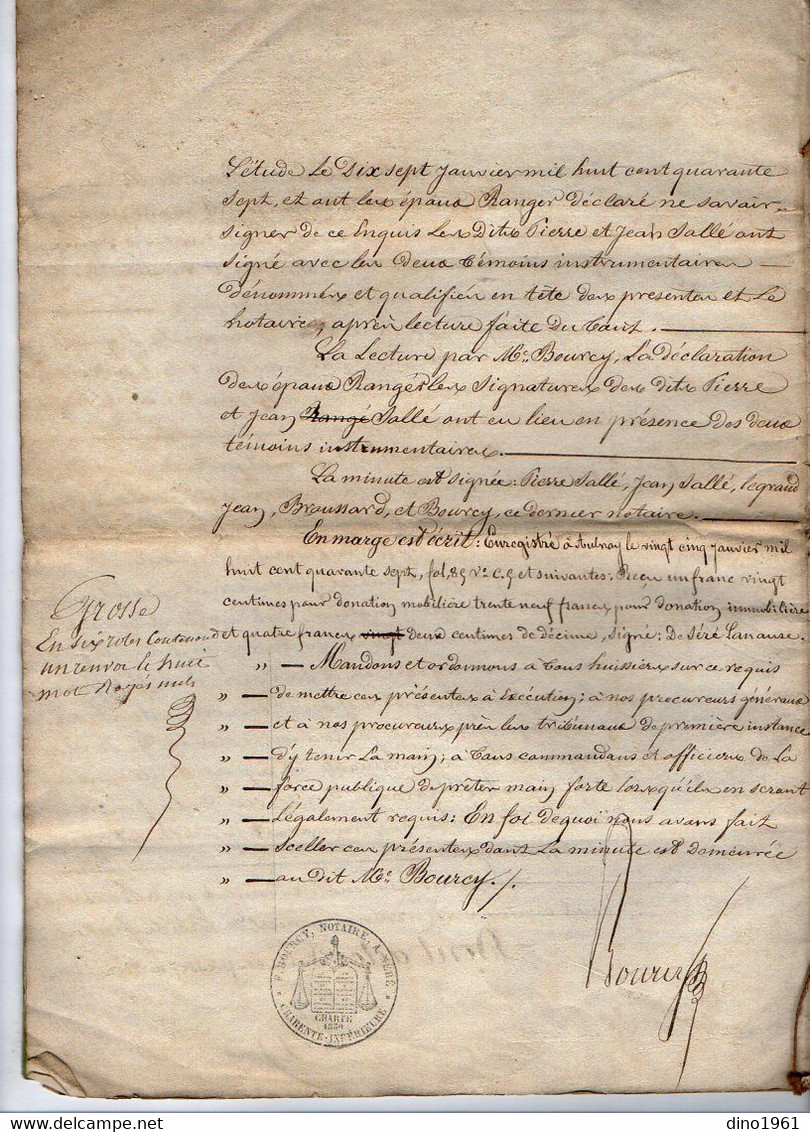 L'étude le Dix sept janvier mil huit cent quarante
sept, et ont les époux Ranger déclaré ne savoir
signer de ce Enquis Les Dits Pierre et Jean Sallé ont
signé avec les deux témoins instrumentaires
dénommés et qualifiés en tête des presentes et Le
notaire, après lecture faite du tout.
La Lecture par Me. Bourcy, La déclaration
des époux Rangér les signatures des dits Pierre
et Jean Rangé Sallé ont eu lieu en présence des deux
témoins instrumentaires.
La minute est signée: Pierre Sallé, Jean Sallé, legrand
Jean, Broussard, et Bourcy, ce dernier notaire.
En marge est écrit: Enregistré à Aulnay le vingt cinq janvier mil
huit cent quarante sept, fol. 85 Vo. C. 5 et suivantes: Reçu un franc vingt
centimes pour donation mobilière trente neuf francs pour donation immobilière
et quatre francs vingt deux centimes de décime, signé: De Séré Lanause.
Grosse
En six roles Contenant
un renvoi le huit
mot Rayés nuls
" — Mandons et ordonnons à tous huissiers sur ce requis
" — de mettre ces présentes à Exécution; à nos procureurs généraux
" — et à nos procureurs près les tribunaux de première instance
" — d'y tenir La main; à tous commandans et officiers de La
" — force publique de prêter main forte lorsqu'ils en seront
" — Légalement requis: En foi de quoi nous avons fait
" — Sceller ces présentes dont La minute est Demeurée
" — au dit Me. Bourcy./.
Bourcy
BOURCY, NOTAIRE, A NÉRÉ
CHARTE
1830
CHARENTE-INFÉRIEURE
dino1961